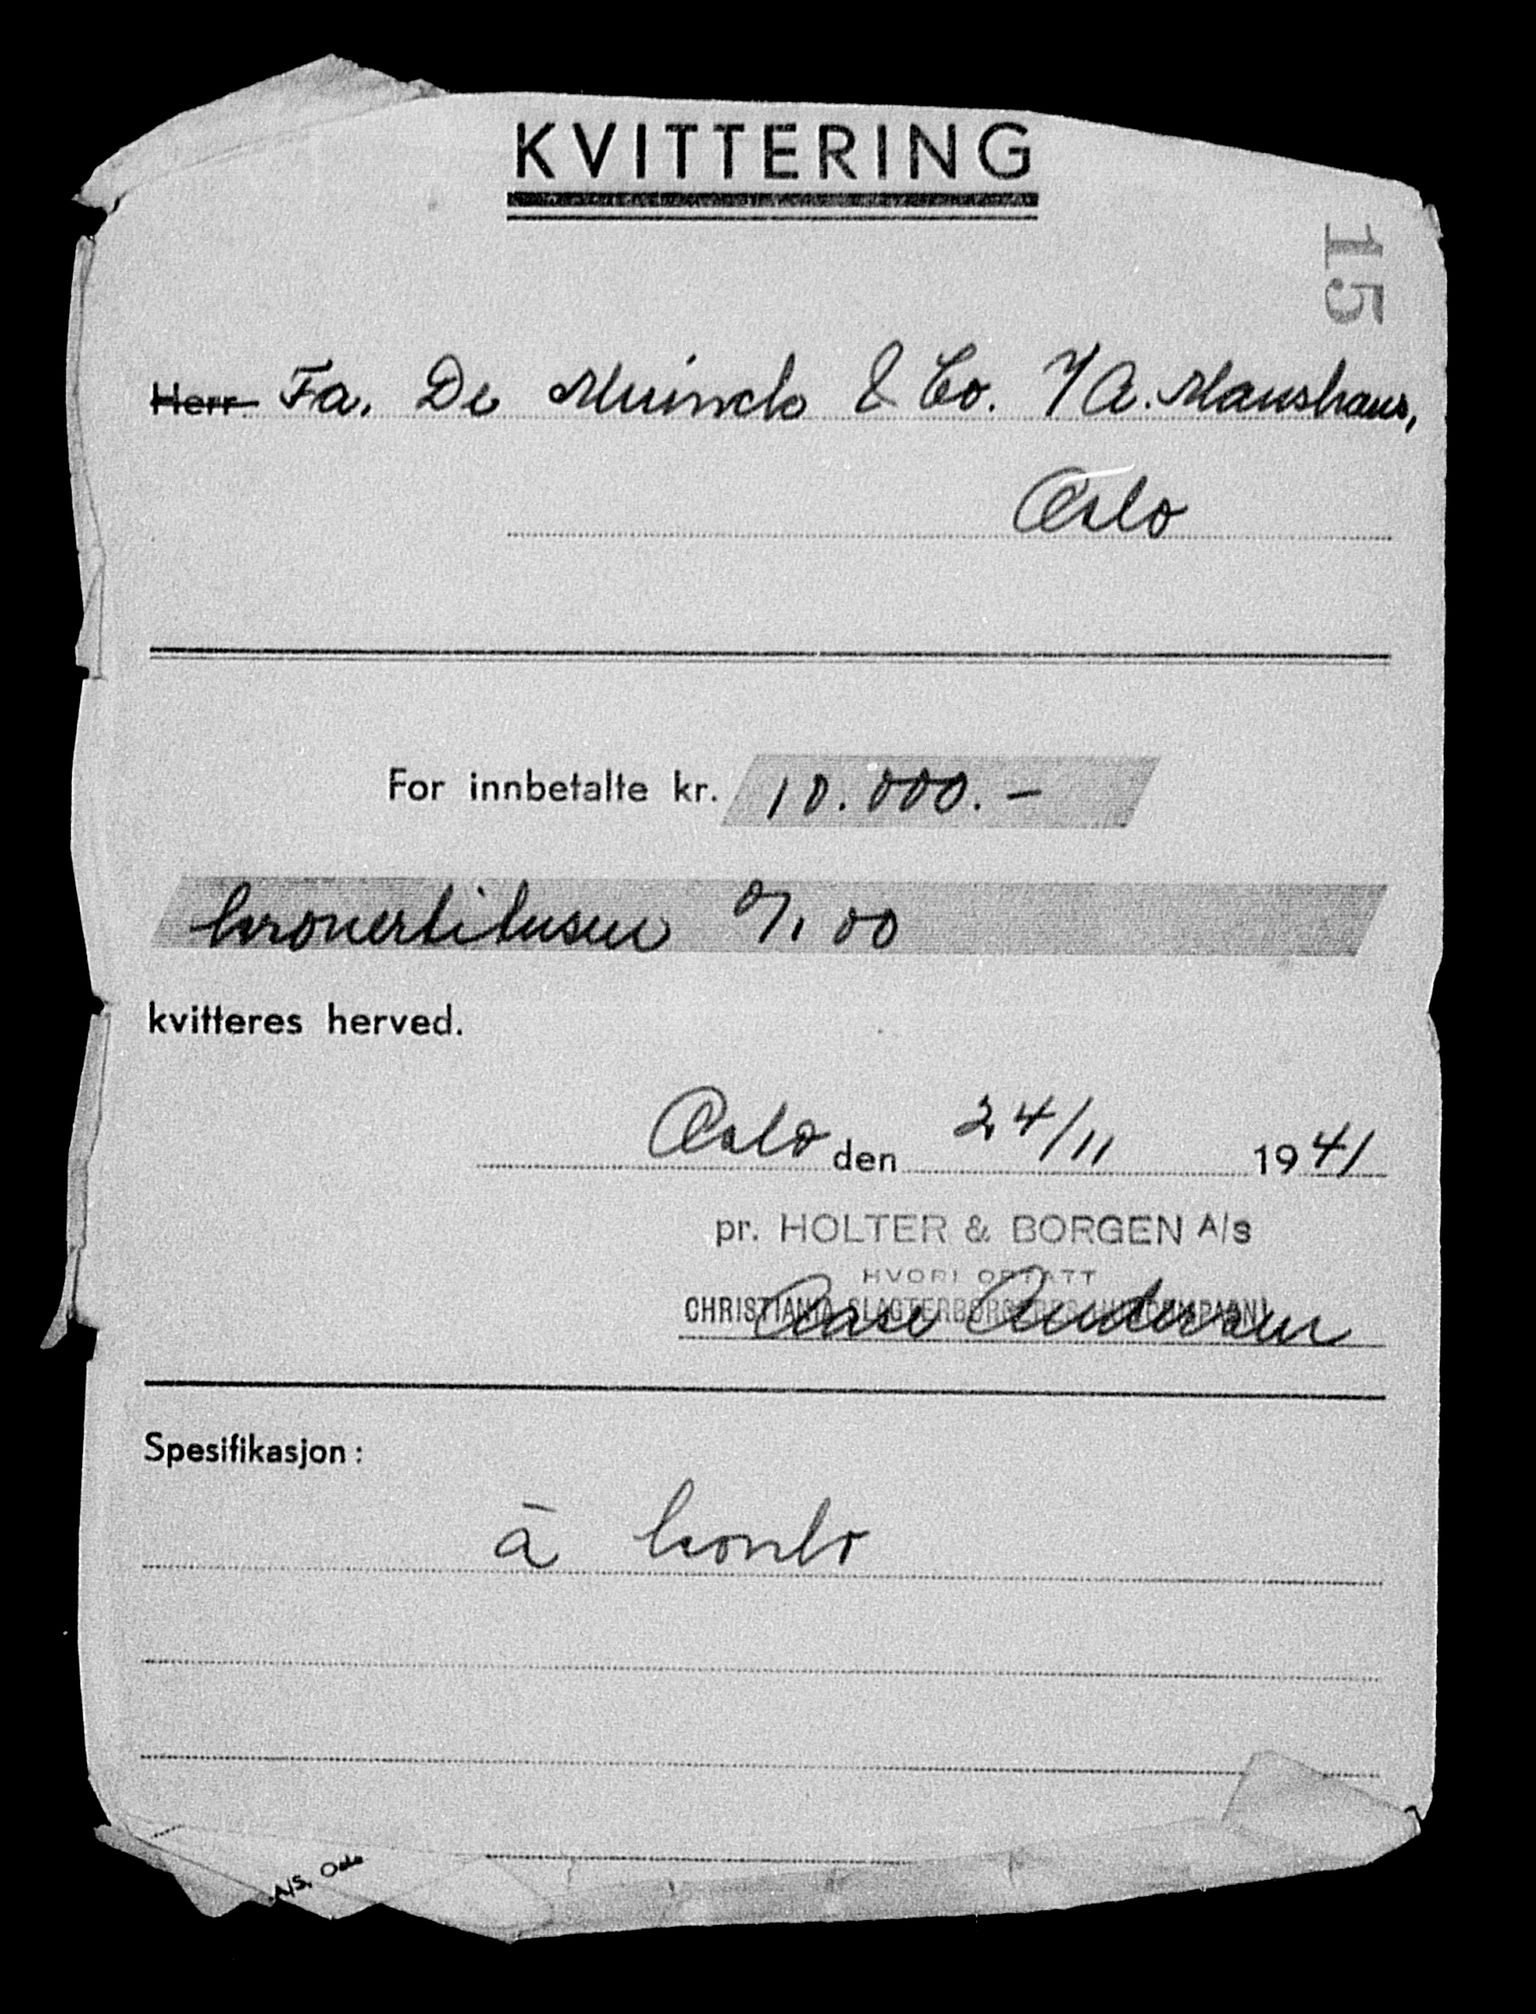 KVITTERING
15
Herr Fa. De Muinck & Co. A. Maushaus,
Oslo
For innbetalte kr. 10.000.-
kronertitusen 0/100
kvitteres herved.
Oslo den 24/11 1941
pr. HOLTER & BORGEN A/S
HVORI OPTATT
CHRISTIANIA SLAGTERBORGERES
Aase Andersen
Spesifikasjon:
à konto
A/S, Oslo